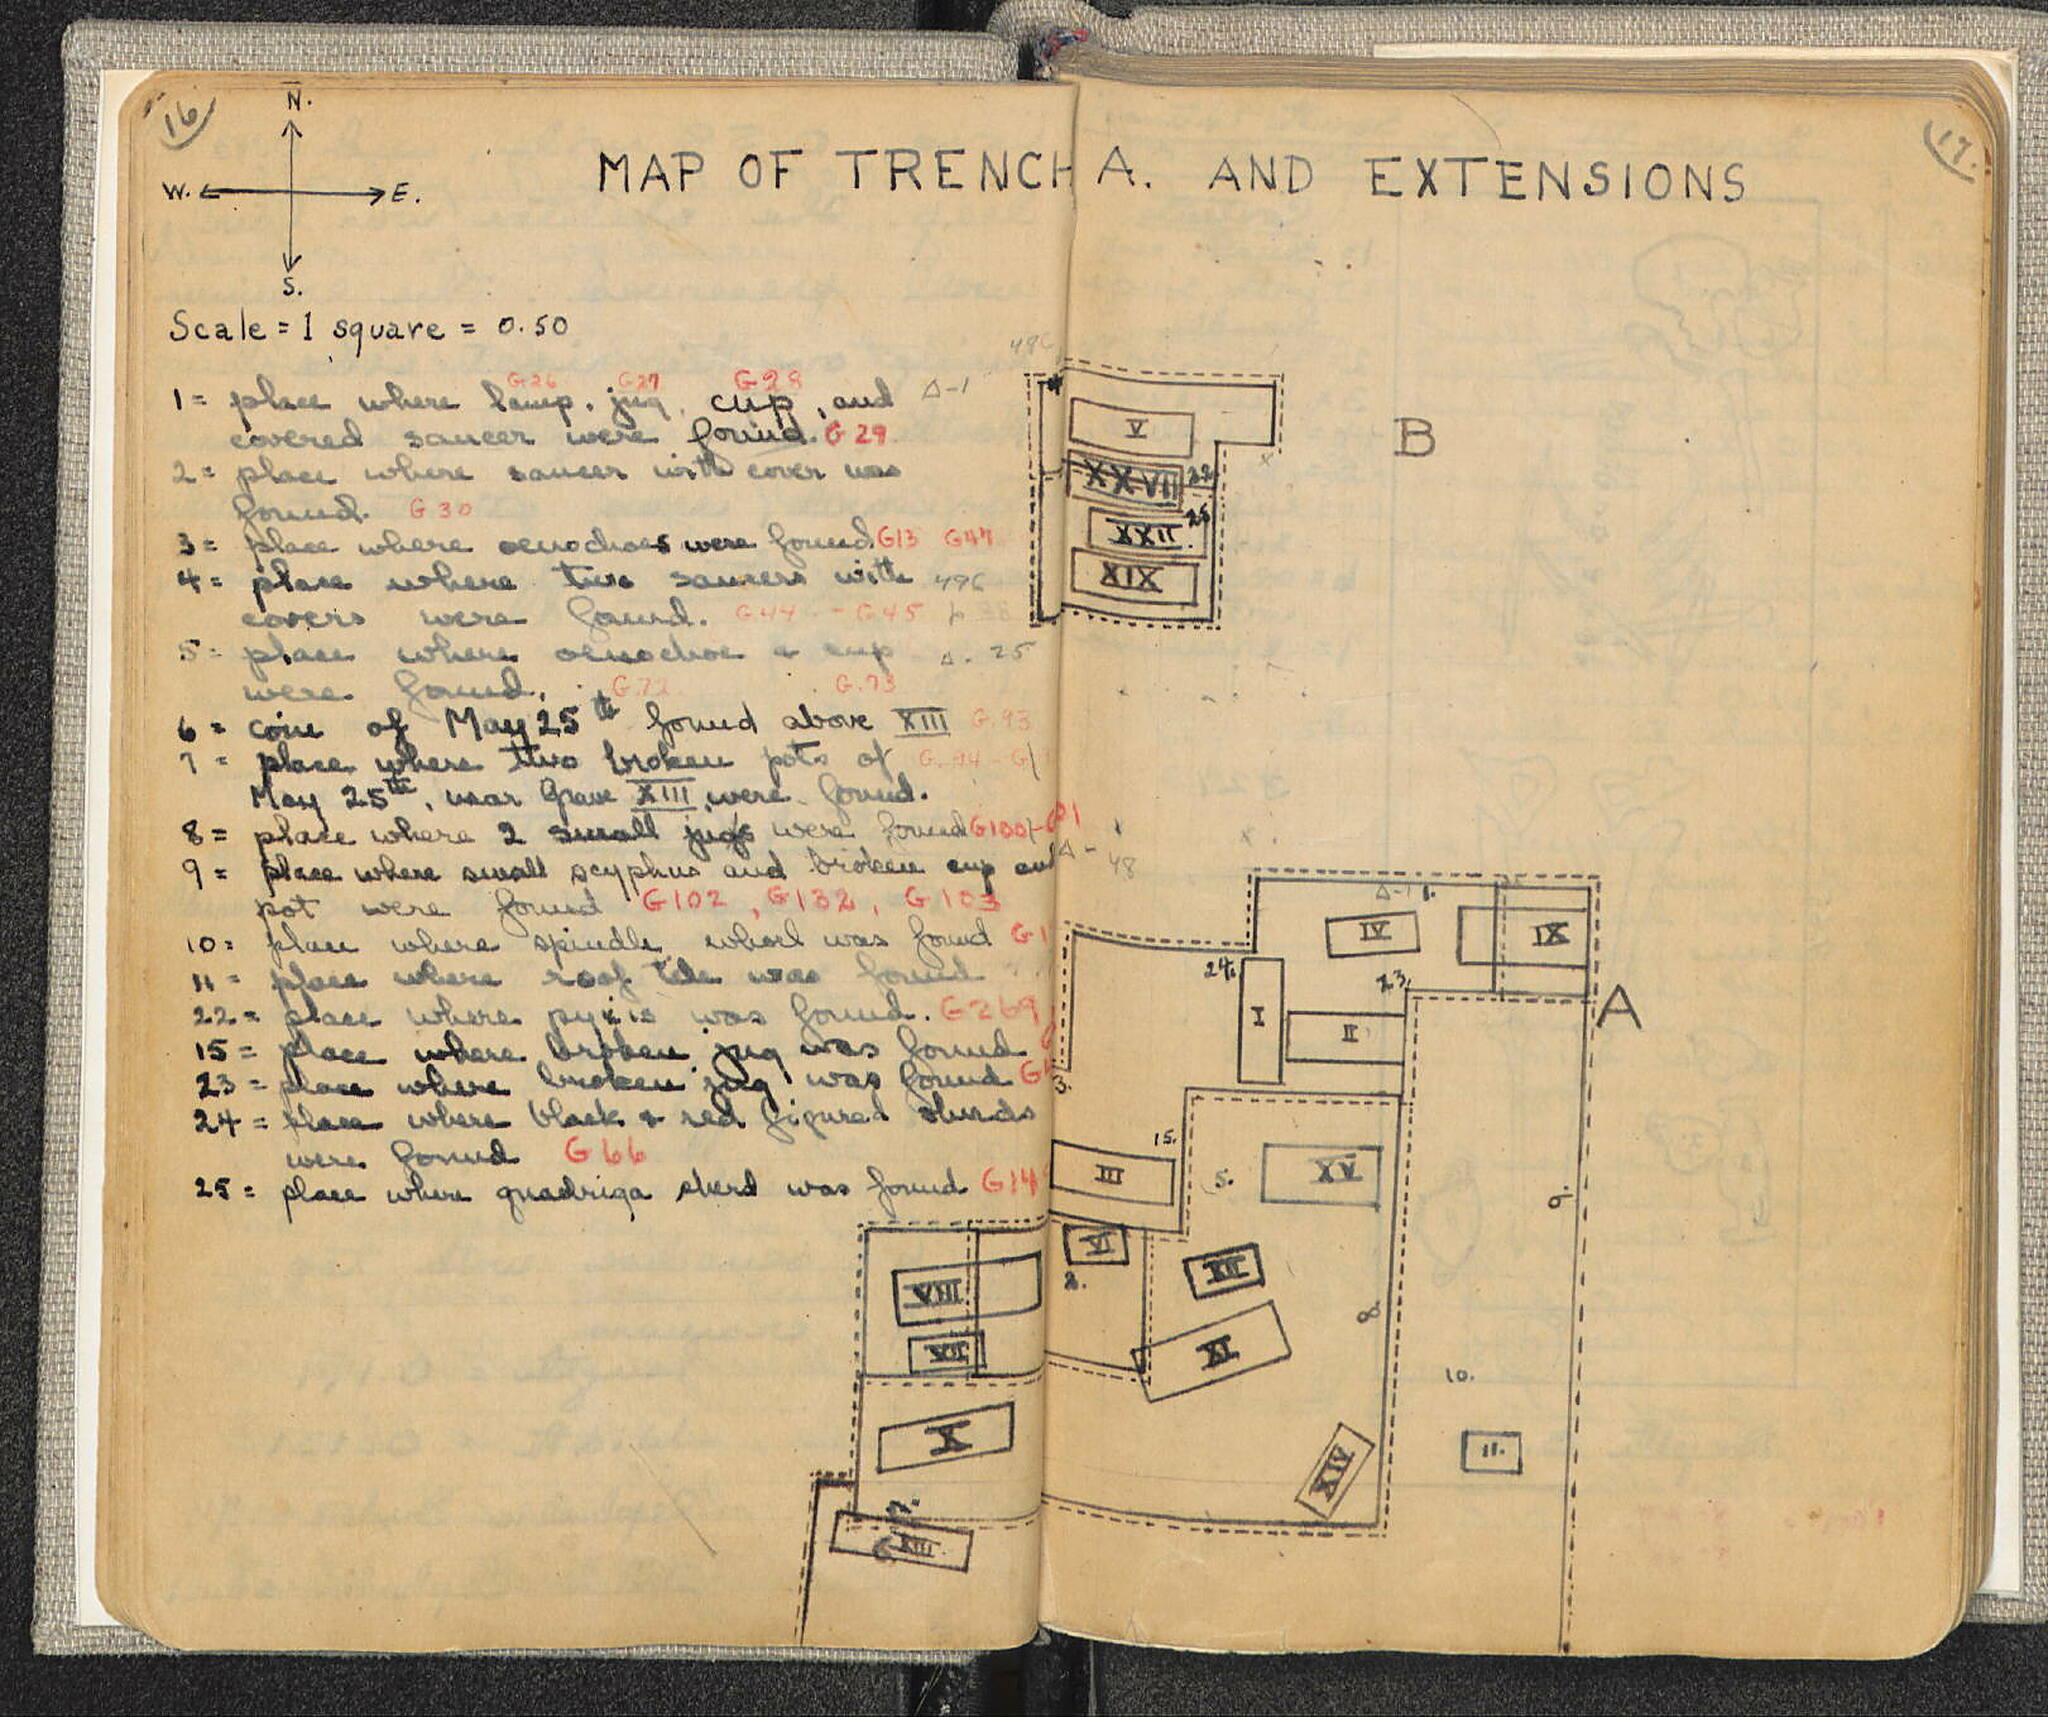 16
17.
N.
W. E.
S.
MAP OF TRENCH A. AND EXTENSIONS
Scale = 1 square = 0.50
G26 G27 G28
1 = place where lamp, jug, cup, and Δ-1
covered saucer were found. G29
2 = place where saucer with cover was
found. G30
3 = place where oenochoes were found G13 G47
4 = place where two saucers with 496
covers were found. G44 - G45
5 = place where oenochoe & cup Δ. 25
were found. G.72 G.73
6 = coin of May 25th found above XIII G.93
7 = place where two broken pots of
May 25th, near Grave XIII, were found.
8 = place where 2 small jugs were found G100-
9 = place where small scyphus and broken cup and
pot were found G102, G132, G103
10 = place where spindle whorl was found
11 = place where roof tile was found
22 = place where pyxis was found. G269
15 = place where broken jug was found
23 = place where broken jug was found
24 = place where black & red figured sherds
were found G66
25 = place where quadriga sherd was found
496
V
B
XXVII 22
XXII 25
XIX
Δ - 48
Δ-1 1.
IV IX
24. 23.
I II
A
3.
15.
III 5. XV
9.
VI XII
2.
VIII
8
VII XI
10.
X 11.
XIV
7.
6 XIII